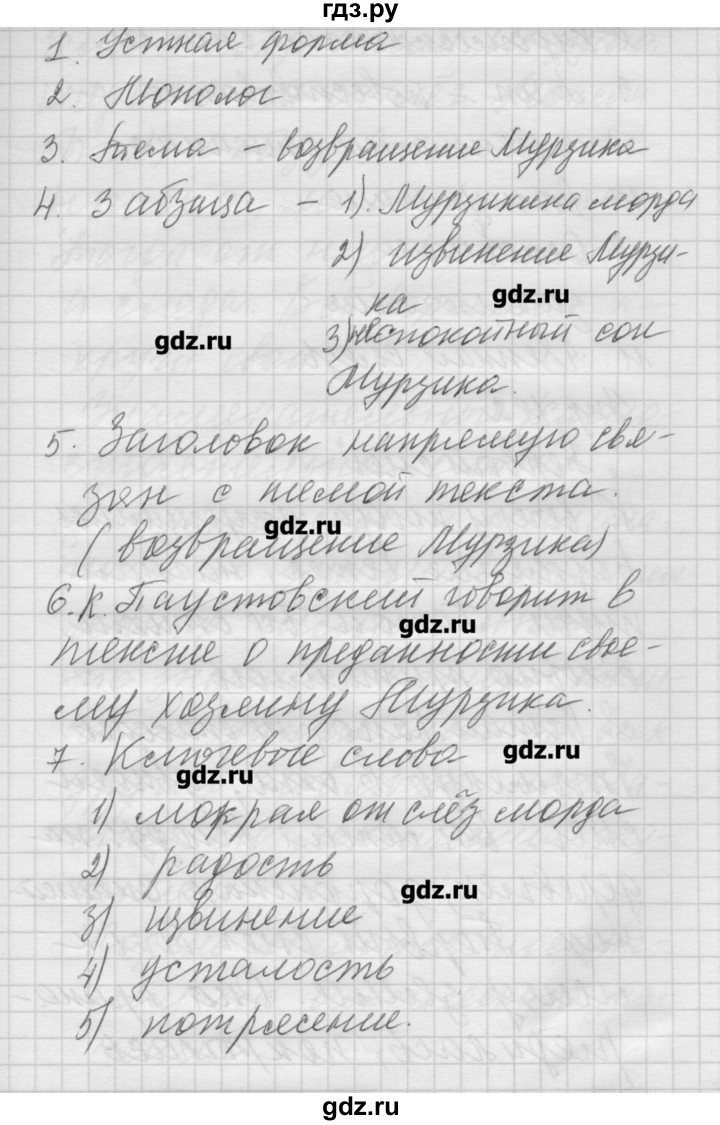 гдз.ру
1. Устная форма
2. Монолог
3. Тема – возвращение Мурзика
4. 3 абзаца – 1). Мурзикина морда
2) извинение Мурзи-
ка
gdz.ru
gdz.ru
3) неспокойный сон
Мурзика.
5. Заголовок напрямую свя-
зан с темой текста.
gdz.ru
(возвращение Мурзика)
6. К. Паустовский говорит в
gdz.ru
тексте о преданности свое-
му хозяину Мурзика.
7. Ключевые слова
gdz.ru
gdz.ru
1) мокрая от слёз морда
2) радость
gdz.ru
3) извинение
4) усталость
5) потрясение.
gdz.ru